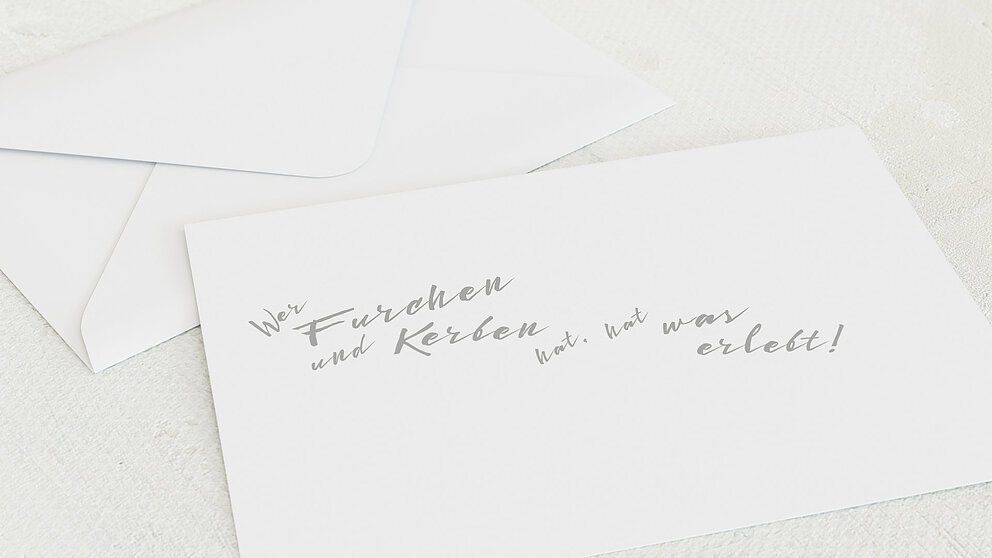 Wer Furchen
und Kerben
hat, hat was
erlebt!